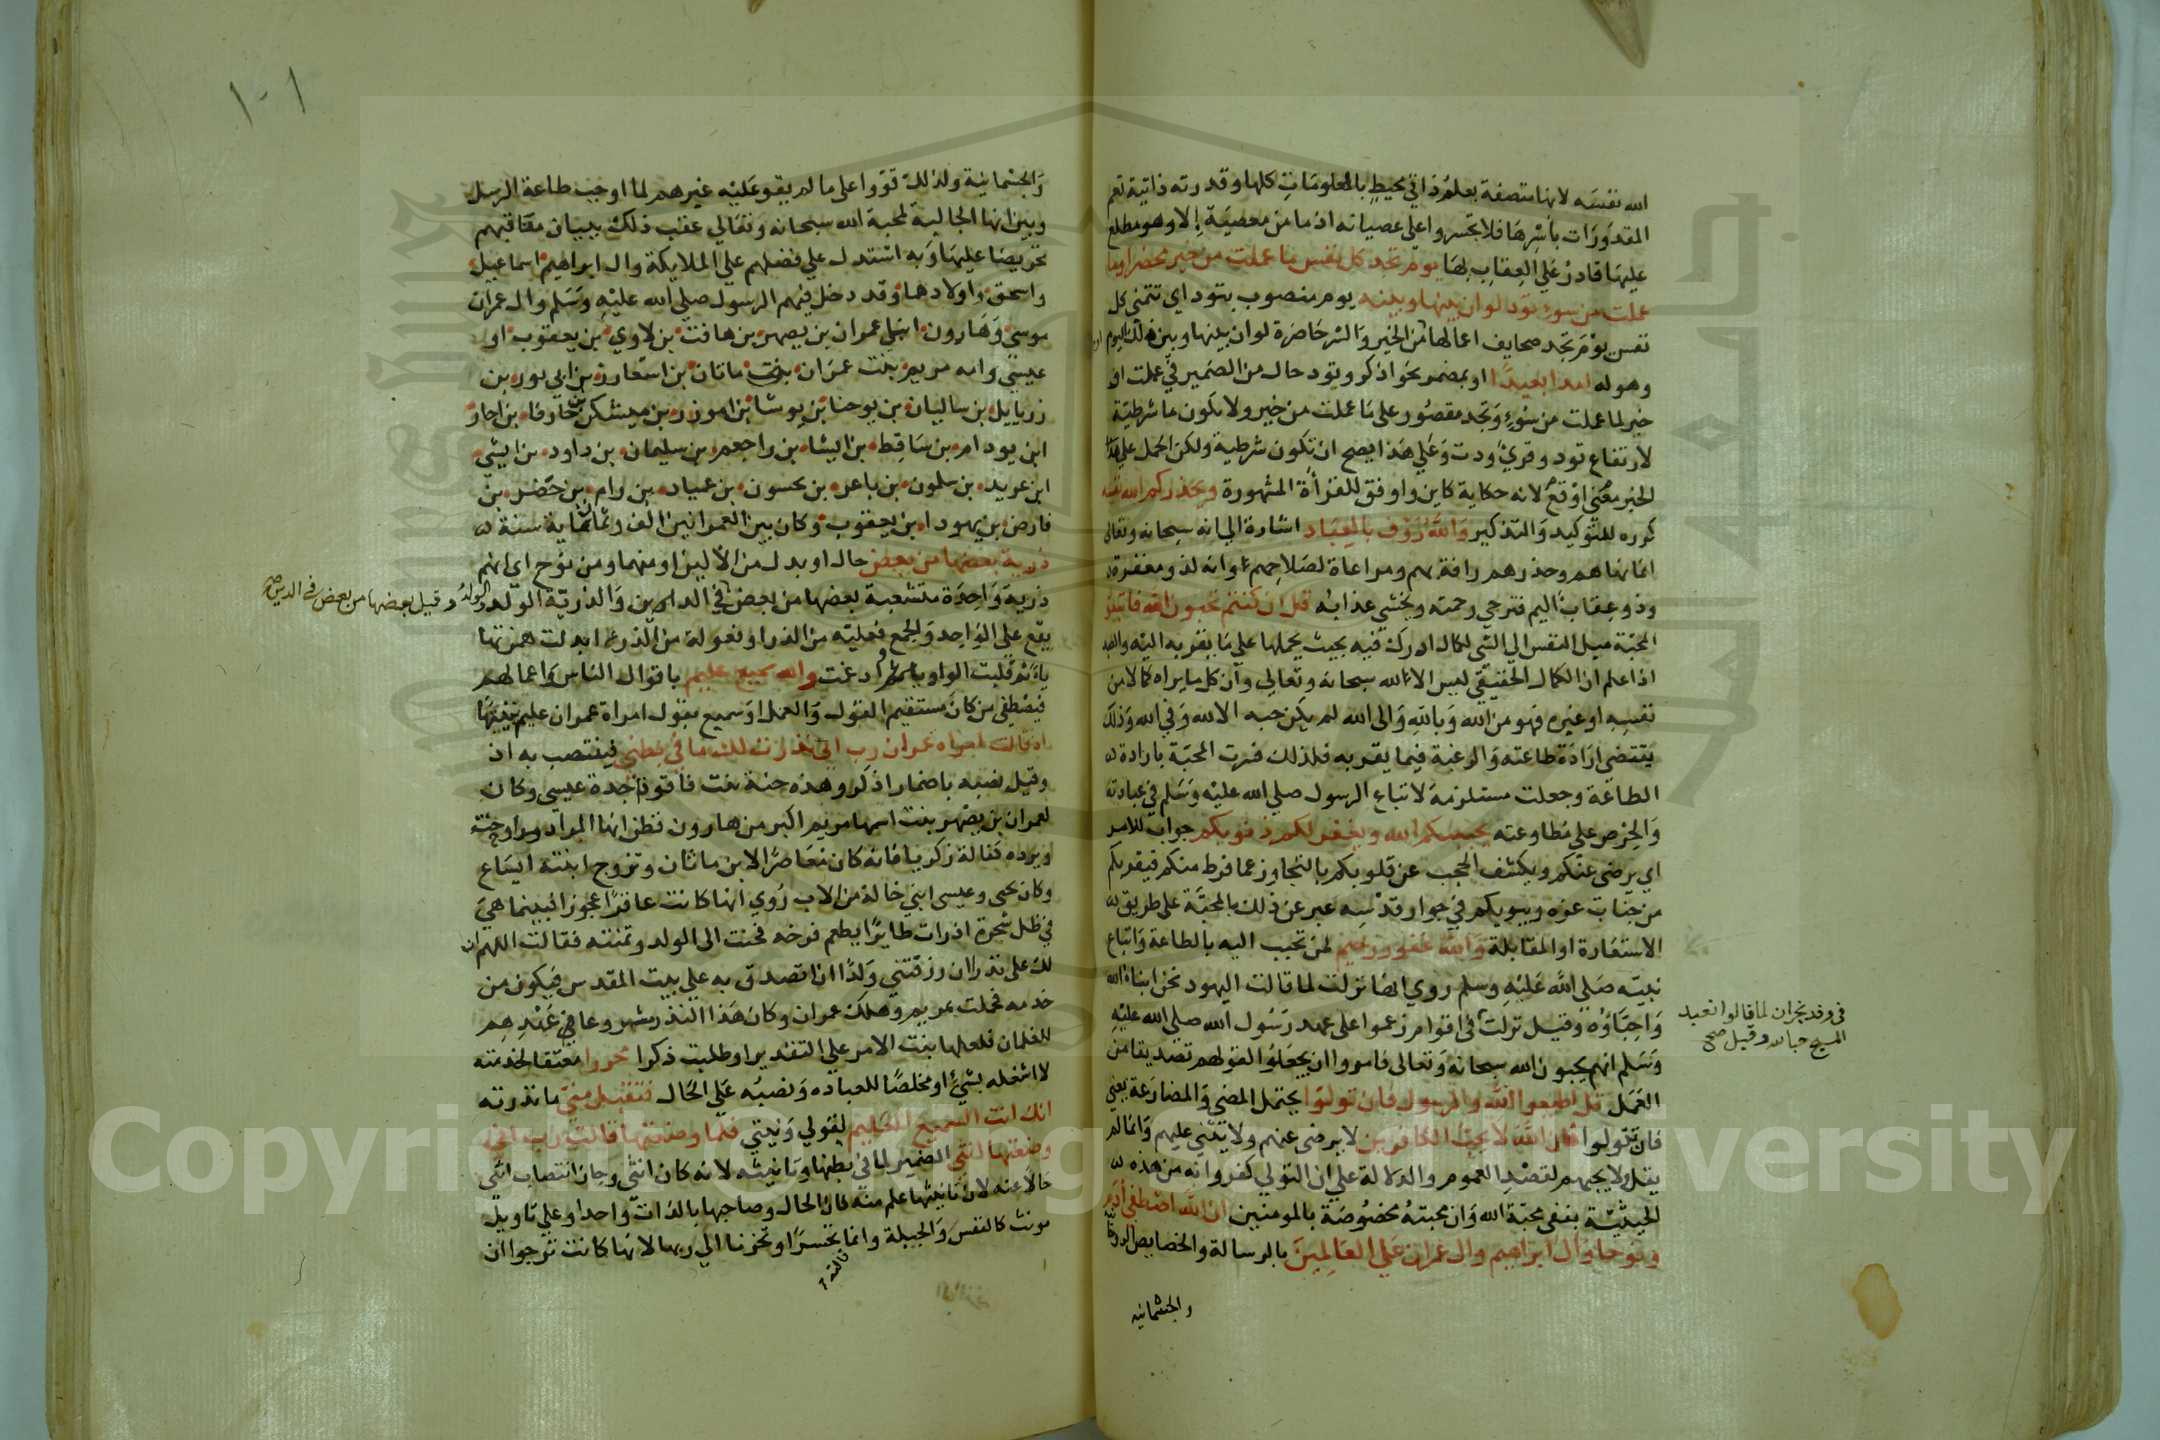 الله نفسه لانها متصفة بعلم ذاتي محيط بالمعلومات كلها وقدرته ذاتية تعم
المقدورات بأسرها فلا تجسروا على عصيانه اذ ما من معصية إلا وهو مطلع
عليها قادر على العقاب بها يوم تجد كل نفس ما عملت من خير محضرا وما
عملت من سوء تود لو ان بينها وبينه يوم منصوب بتود اي تتمنى كل
نفس يوم تجد صحايف اعمالها من الخير والشر حاضرة لو ان بينها وبين ذلك اليوم
وهوله امدا بعيدا او بمضمر نحو اذكر وتود حال من الضمير في عملت او
خبر لما عملت من سوء وتجد مقصور على ما عملت من خير ولا تكون ما شرطية
لارتفاع تود وقري ودت وعلي هذا يصح ان تكون شرطية ولكن الحمل علي
الخبر معنى اوقع لانه حكاية كاين واوفق للقرأة المشهورة ويحذركم الله نفسه
كرره للتوكيد والتذكير والله رؤف بالعباد اشارة الي انه سبحانه وتعالى
انما نهاهم وحذرهم رافة بهم ومراعاة لصلاحهم او انه لذو مغفرة
وذو عقاب اليم فترجي رحمته ويخشي عذابه قل ان كنتم تحبون الله فاتبعوني
المحبة ميل النفس الي الشي لكمال ادركت فيه بحيث يحملها علي ما يقربه اليه والعبد
اذا علم ان الكمال الحقيقي ليس الا لله سبحانه وتعالي وان كل ما يراه كمالا من
نفسه او غيره فهو من الله وبالله والى الله لم يكن حبه الا لله وفي الله وذلك
يقتضي ارادة طاعته والرغبة فيما يقربه فلذلك فسرت المحبة بارادة
الطاعة وجعلت مستلزمة لاتباع الرسول صلى الله عليه وسلم في عبادته
والحرص علي مطاوعته يحببكم الله ويغفر لكم ذنوبكم جواب للامر
اي يرضى عنكم ويكشف الحجب عن قلوبكم بالتجاوز عما فرط منكم فيقربكم
من جناب عزه ويبوئكم في جوار قدسه عبر عن ذلك بالمحبة على طريق
الاستعارة او المقابلة والله غفور رحيم لمن تحبب اليه بالطاعة واتباع
نبيه صلى الله عليه وسلم روي انها نزلت لما قالت اليهود نحن ابناء الله
واحباؤه وقيل نزلت في اقوام زعموا على عهد رسول الله صلي الله عليه
في وفد نجران لما قالوا نعبد
المسيح حبا لله وقيل صح
وسلم انهم يحبون الله سبحانه وتعالى فامروا ان يجعلوا لقولهم تصديقا من
العمل قل اطيعوا الله والرسول فان تولوا يحتمل المضي والمضارعة بمعني
فان تتولوا فان الله لا يحب الكافرين لا يرضى عنهم ولا يثني عليهم وانما لم
يقل لا يحبهم لقصد العموم والدلالة علي ان التولي كفر وانه من هذه
الحيثية ينفى محبة الله وان محبته مخصوصة بالمومنين ان الله اصطفى آدم
ونوحا وآل ابراهيم وال عمران علي العالمين بالرسالة والخصايص الروحانية
والجسمانيه
١٠١
والجسمانية ولذلك قووا على ما لم يقو عليه غيرهم لما اوجب طاعة الرسل
وبين انها الجالبة لمحبة الله سبحانه وتعالي عقب ذلك ببيان مناقبهم
تحريضا عليها وبه استدل علي فضلهم علي الملايكة وال ابراهيم اسماعيل
واسحق واولادهما وقد دخل فيهم الرسول صلى الله عليه وسلم وال عمران
موسى وهارون ابني عمران بن يصهر بن هافت بن لاوي بن يعقوب او
عيسى وامه مريم بنت عمران بن ماتان بن اسعارد بن ابي يور بن
زربايل بن ساليان بن يوحنا بن يوشا بن امورر بن ميشكن بن حارقا بن احاز
ابن يودام بن ساقط بن ايشا بن راجعم بن سليمان بن داود بن ايشي
ابن عربد بن سلون بن باعر بن نحسون بن عمياد بن رام بن حضر بن
فارض بن يهودا بن يعقوب وكان بين العمرانين الف وثمانماية سنة
ذرية بعضها من بعض حال او بدل من الألين او منهما ومن نوح اى انهم
ذرية واحدة متشعبة بعضها من بعض في الدين والذرية الولد
وقيل بعضها من بعض في الدين صح
يقع على الواحد والجمع فعلية من الذر او فعولة من الذرء ابدلت همزتها
ياء ثم قلبت الواو ياء وادغمت والله سميع عليم باقوال الناس واعمالهم
فيصطفي من كان مستقيم القول والعمل او سميع بقول امراة عمران عليم بنيتها
اذ قالت امراة عمران رب اني نذرت لك ما في بطني فينتصب به اذ
وقيل نصبه باضمار اذكر وهذه حنة بنت فاقوذ جدة عيسى وكان
لعمران بن يصهر بنت اسمها مريم اكبر من هارون فظن انها المراد وزوجته
ويرده كفالة زكريا فانه كان معاصرا لابن ماثان وتزوج ابنته ايساع
وكان يحيى وعيسى ابني خالة من الاب روي انها كانت عاقرا عجوزا فبينما هي
في ظل شجرة اذ رات طايرا يطعم فرخه فحنت الى الولد وتمنته فقالت اللهم ان
لك على نذرا ان رزقتني ولدا ان اتصدق به علي بيت المقدس فيكون من
خدمه فحملت بمريم وهلك عمران وكان هذا النذر مشروعا في عهدهم
للغلمان فلعلها بنت الامر علي التقدير او طلبت ذكرا محررا معتقا لخدمته
لا اشغله بشيء او مخلصا للعباده ونصبه علي الحال فتقبل مني ما نذرته
انك انت السميع العليم لقولي ونيتي فلما وضعتها قالت رب اني
وضعتها انثى الضمير لما في بطنها وتانيثه لانه كان انثى وجاز انتصاب انثي
حالا عنه لان تانيثها علم منه فان الحال وصاحبها بالذات واحد او علي تاويل
مونث كالنفس والحبيلة وانما تحسرا وتحزنا الي ربها لانها كانت ترجوا ان